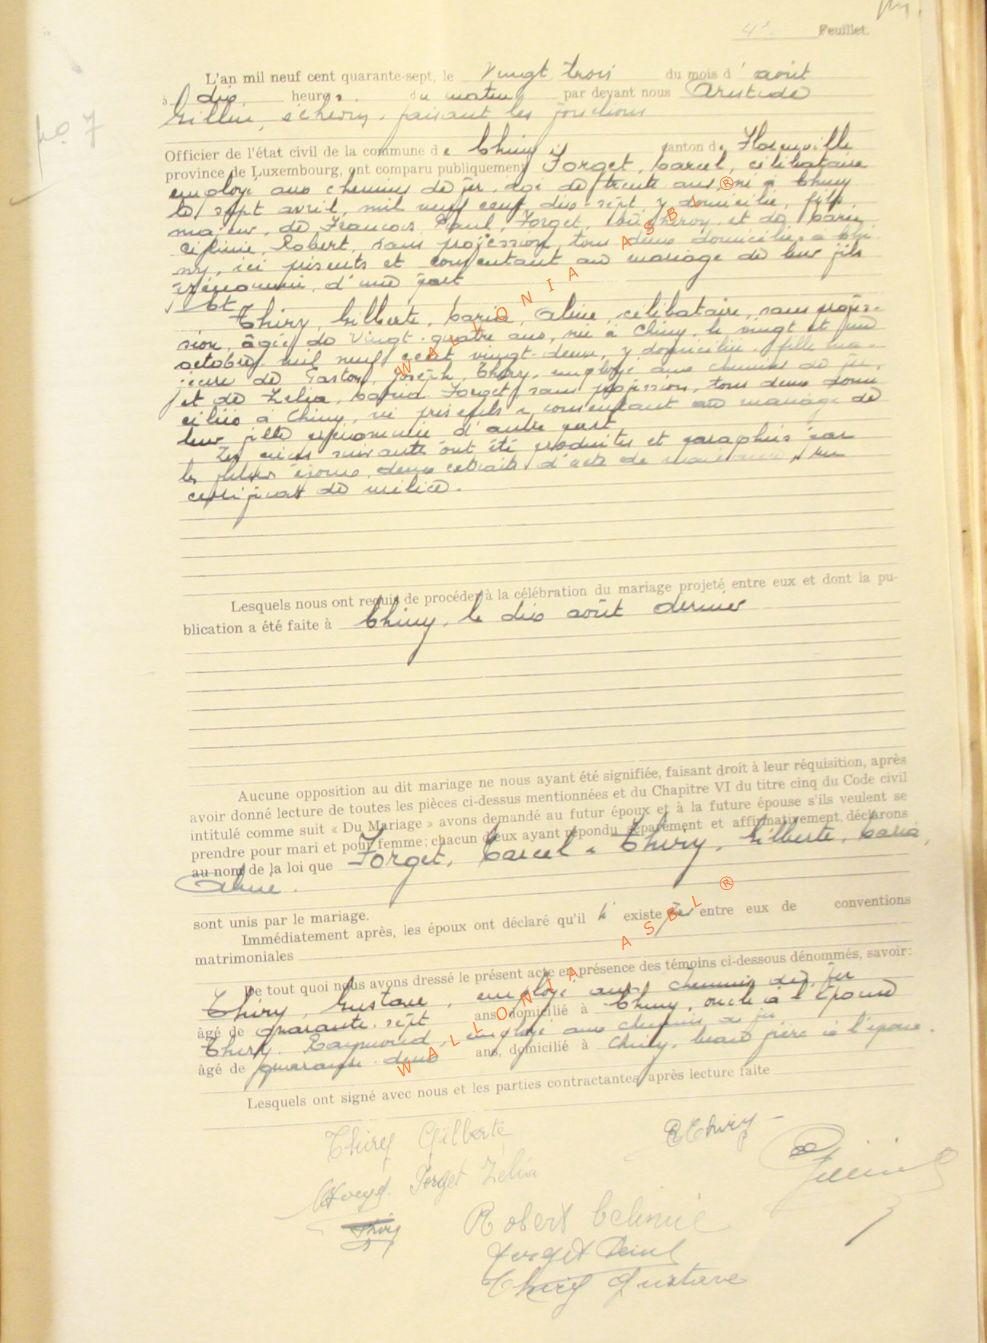 4e Feuillet.
No 7
L'an mil neuf cent quarante-sept, le vingt trois du mois d'août
à dix heures du matin par devant nous Aristide
Gillin, échevin, faisant les fonctions
Officier de l'état civil de la commune de Chiny canton de Florenville
province de Luxembourg, ont comparu publiquement Forget, Marcel, célibataire
employé aux chemins de fer, âgé de trente ans, né à Chiny
le sept avril, mil neuf cent dix-sept, y domicilié, fils
majeur, de François, Paul, Forget, et de Marie
Célinie, Robert, sans profession, tous deux domiciliés à Chi-
ny, ici présents et consentant au mariage de leur fils
prénommé, d'une part
Et
Thiry, Gilberte, Maria, Aline, célibataire, sans profes-
sion, âgée de vingt-quatre ans, née à Chiny, le vingt et un
octobre mil neuf cent vingt-deux, y domiciliée, fille ma-
jeure de Gaston, Joseph, Thiry, employé aux chemins de fer,
et de Zélia, Maria Forget, sans profession, tous deux domi
ciliés à Chiny, ici présents & consentant au mariage de
leur fille prénommée d'autre part
Les pièces suivantes ont été produites et paraphées par
les futurs époux, deux extraits d'acte de naissance, un
certificat de milice.
Lesquels nous ont requis de procéder à la célébration du mariage projeté entre eux et dont la pu-
blication a été faite à Chiny, le dix août dernier
Aucune opposition au dit mariage ne nous ayant été signifiée, faisant droit à leur réquisition, après
avoir donné lecture de toutes les pièces ci-dessus mentionnées et du Chapitre VI du titre cinq du Code civil
intitulé comme suit « Du Mariage » avons demandé au futur époux et à la future épouse s'ils veulent se
prendre pour mari et pour femme; chacun d'eux ayant répondu séparément et affirmativement, déclarons
au nom de la loi que Forget, Marcel & Thiry, Gilberte, Maria,
Aline.
sont unis par le mariage.
Immédiatement après, les époux ont déclaré qu'il n'existe pas entre eux de conventions
matrimoniales
De tout quoi nous avons dressé le présent acte en présence des témoins ci-dessous dénommés, savoir:
Thiry, Gustave, employé aux chemins de fer
âgé de quarante-sept ans, domicilié à Chiny, oncle à l'épouse
Thiry, Raymond, employé aux chemins de fer
âgé de quarante-deux ans, domicilié à Chiny, beau père à l'épouse.
Lesquels ont signé avec nous et les parties contractantes, après lecture faite
Thiry Gilberte
R Thiry
Gillin
MForget Forget Zélia
Thiry
Robert Célinie
Forget Paul
Thiry Gustave
WALLONIA ASBL ®
WALLONIA ASBL ®